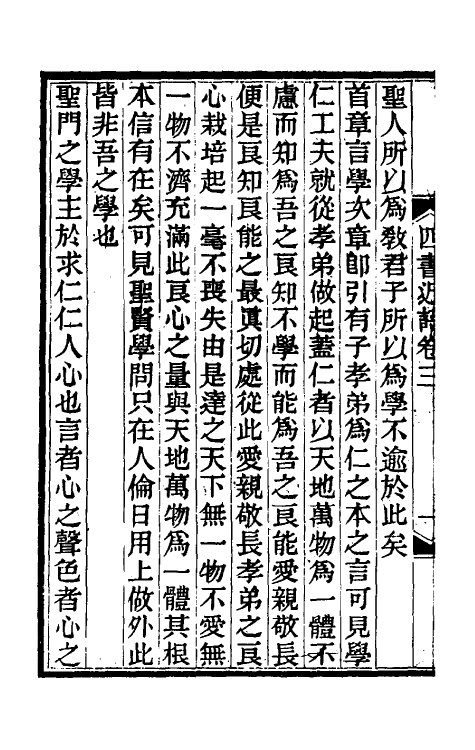 四書近語卷三
一
聖人所以爲敎君子所以爲學不逾於此矣
首章言學次章卽引有子孝弟爲仁之本之言可見學
仁工夫就從孝弟做起蓋仁者以天地萬物爲一體不
慮而知爲吾之良知不學而能爲吾之良能愛親敬長
便是良知良能之最眞切處從此愛親敬長孝弟之良
心栽培起一毫不喪失由是達之天下無一物不愛無
一物不濟充滿此良心之量與天地萬物爲一體其根
本信有在矣可見聖賢學問只在人倫日用上做外此
皆非吾之學也
聖門之學主於求仁仁人心也言者心之聲色者心之